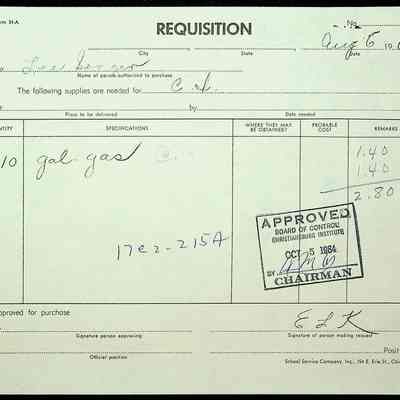 orm 31-A
REQUISITION
No.
City State Aug 5, 196
Date
Lee
Name of person authorized to purchase
The following supplies are needed for C. I.
by
Place to be delivered Date needed
NTITY SPECIFICATIONS WHERE THEY MAY BE OBTAINED? PROBABLE COST REMARKS
10 gal. gas 1.40
1.40
2.80
17e2-215A
APPROVED
BOARD OF CONTROL
CHRISTIANSBURG INSTITUTE
OCT 5 1964
BY
CHAIRMAN
pproved for purchase
E L K
Signature of person approving Signature of person making request
Official position Posit
School Service Company, Inc., 194 E. Erie St., Chic